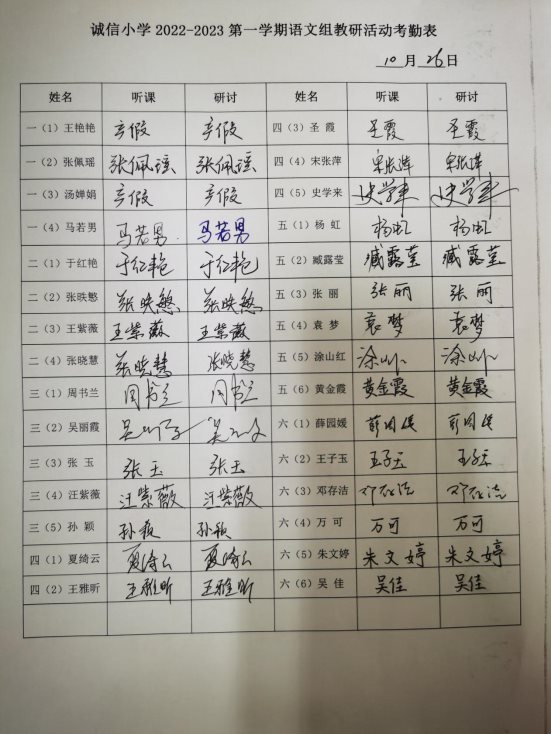 诚信小学 2022-2023 第一学期语文组教研活动考勤表
10 月 26 日
姓名 听课 研讨 姓名 听课 研讨
一（1）王艳艳 产假 产假 四（3）圣 霞 圣霞 圣霞
一（2）张佩瑶 张佩瑶 张佩瑶 四（4）宋张萍 宋张萍 宋张萍
一（3）汤婵娟 产假 产假 四（5）史学来 史学来 史学来
一（4）马若男 马若男 马若男 五（1）杨 虹 杨虹 杨虹
二（1）于红艳 于红艳 于红艳 五（2）臧露莹 臧露莹 臧露莹
二（2）张昳慜 张昳慜 张昳慜 五（3）张 丽 张丽 张丽
二（3）王紫薇 王紫薇 王紫薇 五（4）袁 梦 袁梦 袁梦
二（4）张晓慧 张晓慧 张晓慧 五（5）涂山红 涂山红 涂山红
三（1）周书兰 周书兰 周书兰 五（6）黄金霞 黄金霞 黄金霞
三（2）吴丽霞 六（1）薛园媛 薛园媛 薛园媛
三（3）张 玉 张玉 张玉 六（2）王子玉 王子玉 王子玉
三（4）汪紫薇 汪紫薇 汪紫薇 六（3）邓存洁 邓存洁 邓存洁
三（5）孙 颖 孙颖 孙颖 六（4）万 可 万可 万可
四（1）夏绮云 夏绮云 夏绮云 六（5）朱文婷 朱文婷 朱文婷
四（2）王雅昕 王雅昕 王雅昕 六（6）吴 佳 吴佳 吴佳